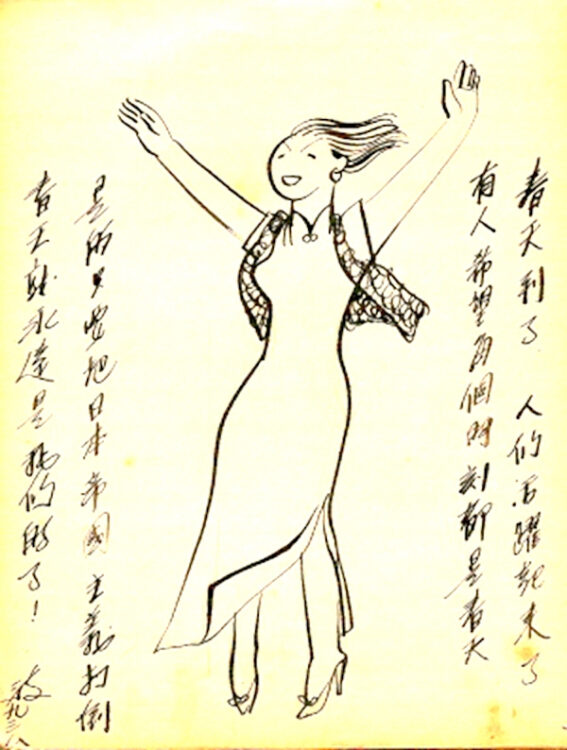 春天到了 人们活躍起来了
有人希望每個时刻都是春天
是的只要把日本帝國主義打倒
春天就永遠是我们的了!